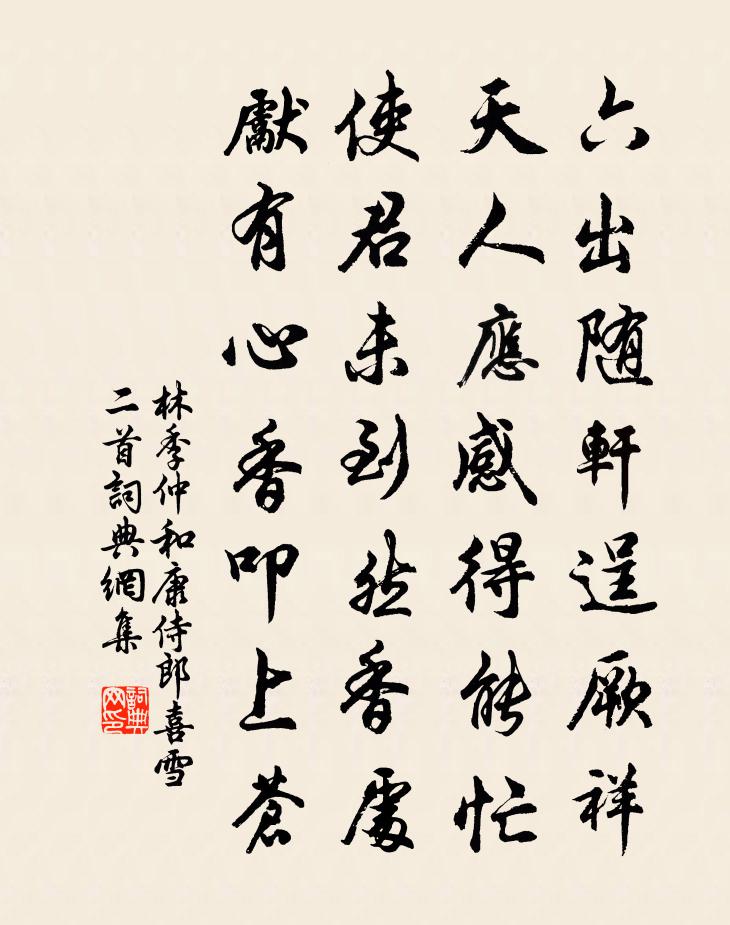 六出随軒逞厥祥
天人應感得能忙
使君未到然香處
獻有心香叩上蒼
林季仲和康侍郎喜雪
二首詞典網集
詞典网印